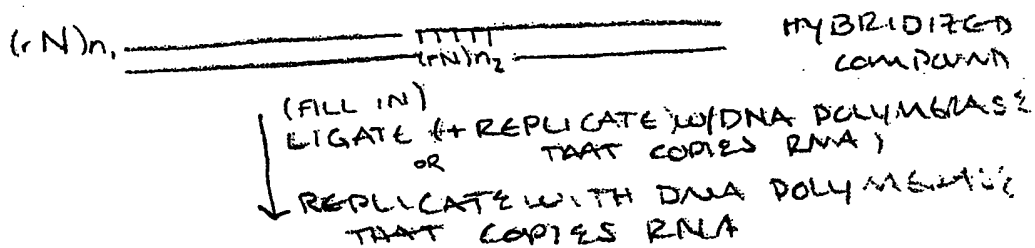 (rN)n1 HYBRIDIZED
(rN)n2 COMPOUND
(FILL IN)
LIGATE (+ REPLICATE) W/DNA POLYMERASE
OR THAT COPIES RNA)
REPLICATE WITH DNA POLYMERASE
THAT COPIES RNA